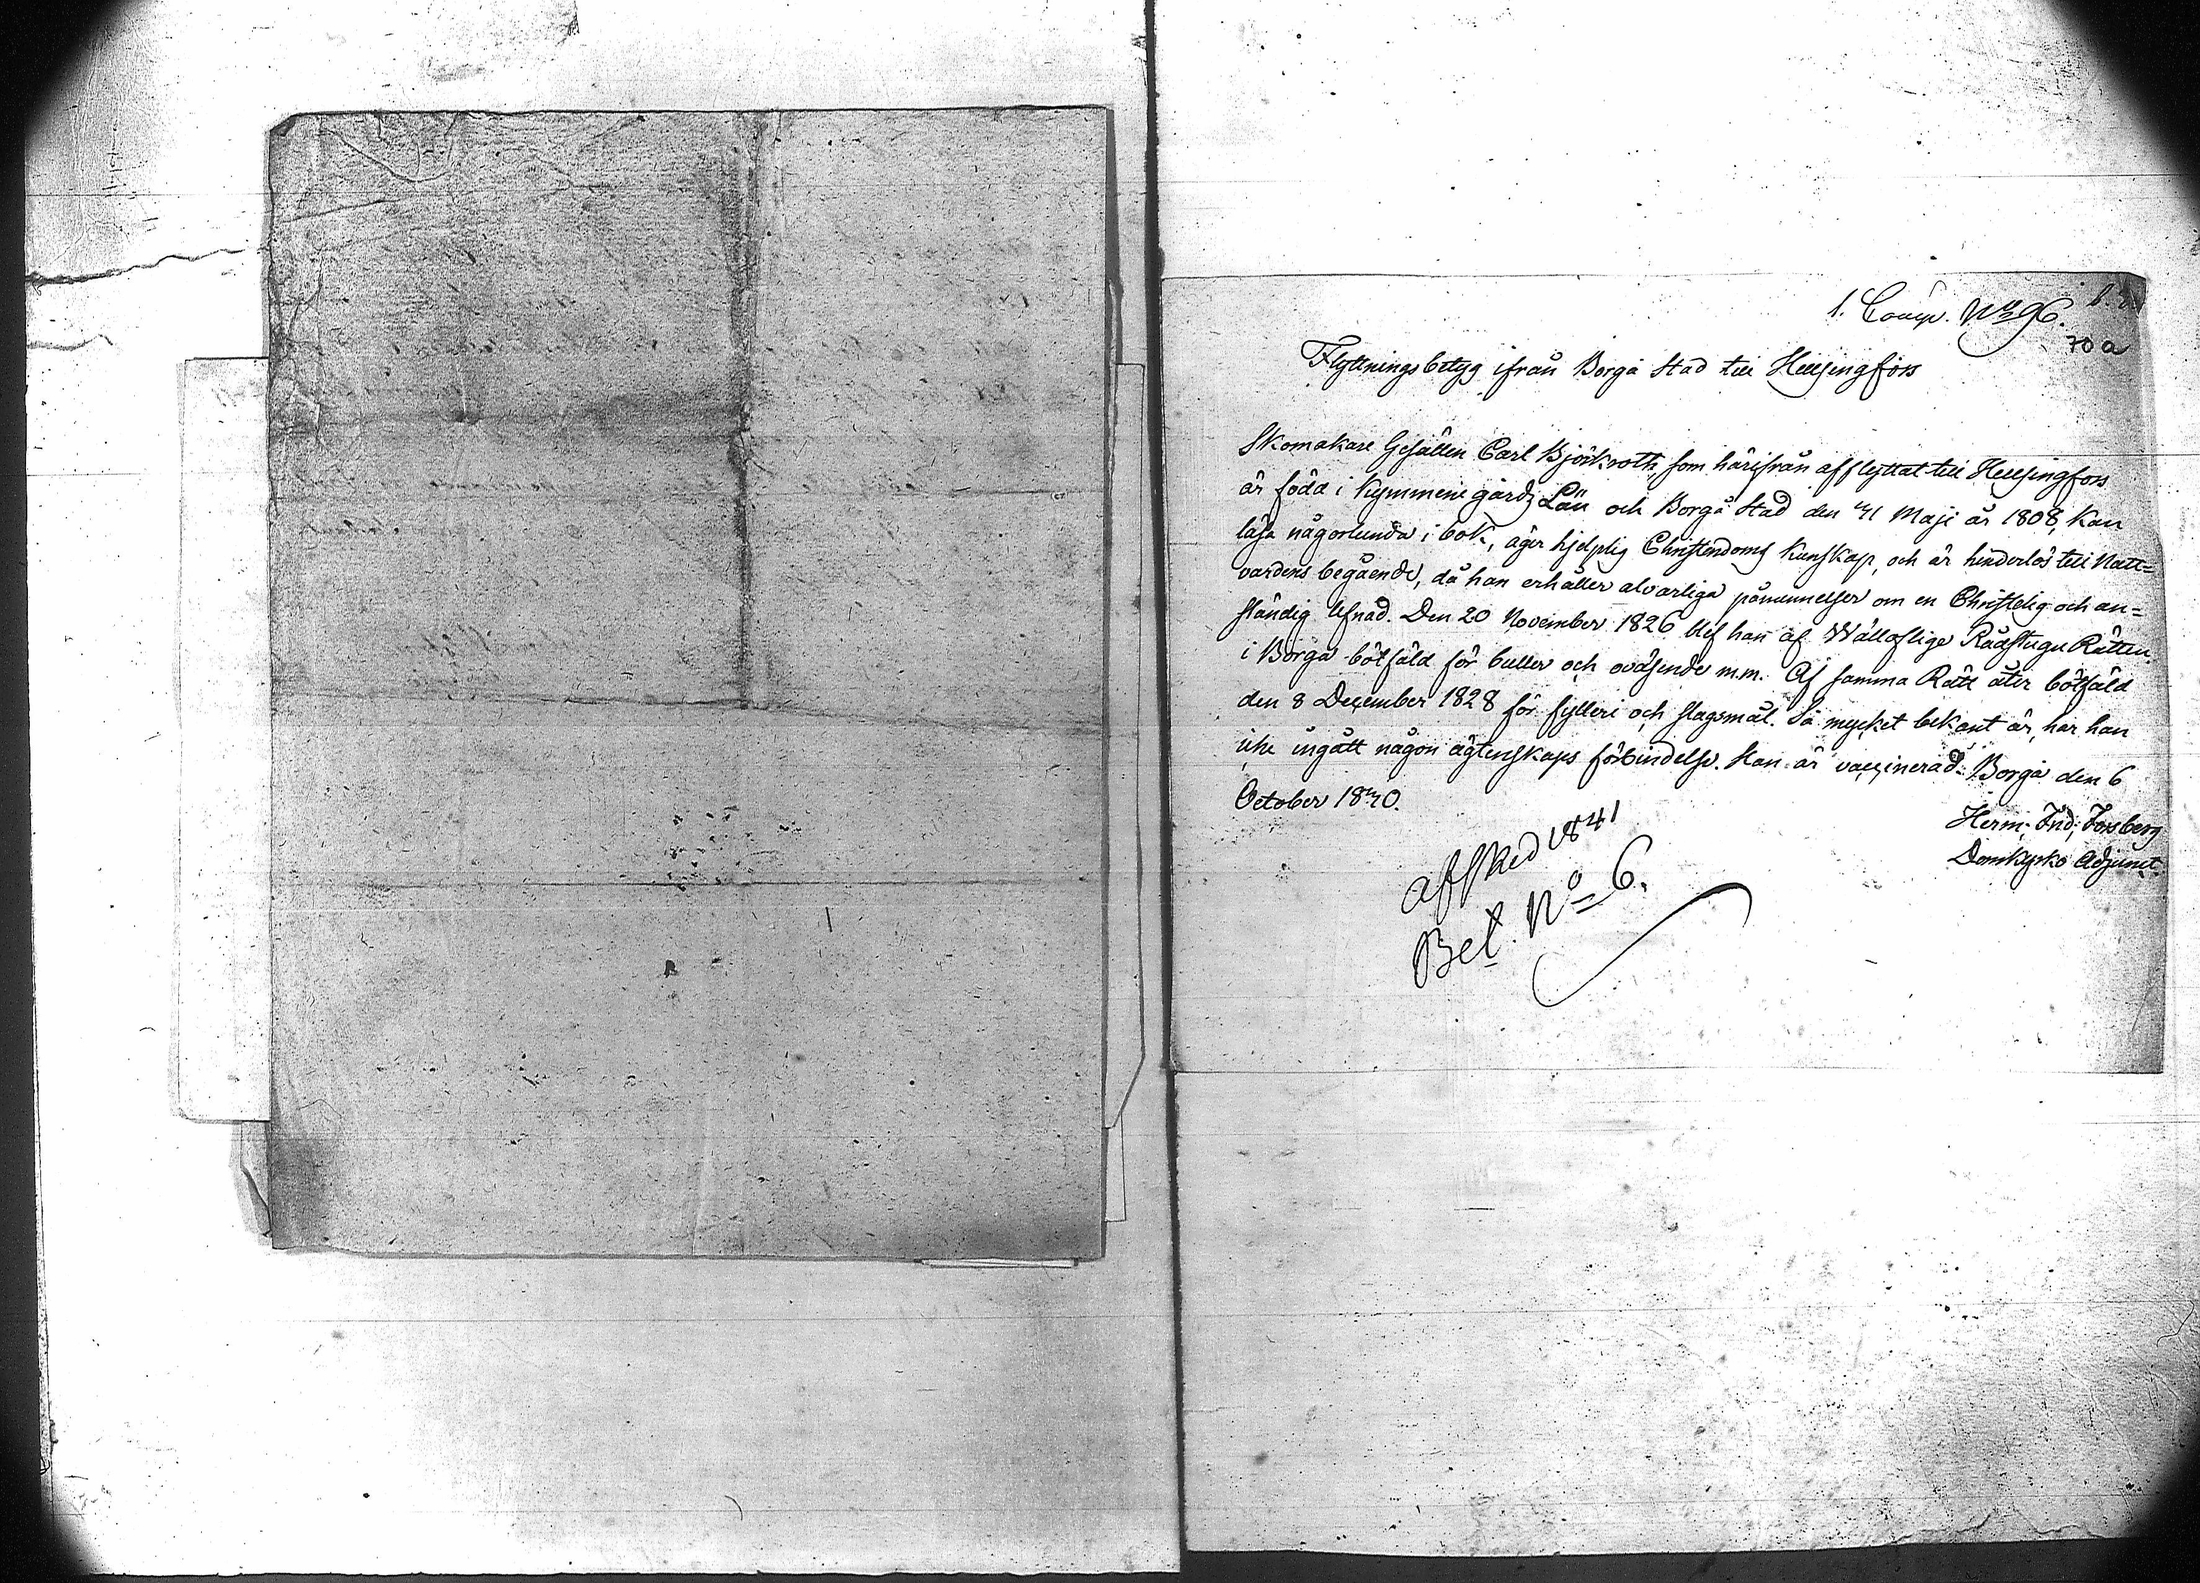 1. Comp. No 96.
70 a
Flyttningsbetyg ifrån Borgå Stad till Hellsingfors
Skomakare Gesällen Carl Björkroth, som härifrån afflyttat till Hellsingfors
är född i Kymmene gårds Län och Borgå Stad den 31 Maji år 1808, kan
läsa någorlunda i bok, äger hjelplig Christendoms kunskap, och är hinderlös till Natt=
vardens begående, då han erhåller alvarliga påminnelser om en Christelig och an=
ständig lefnad. Den 20 November 1826 blef han af Wällofliga Rådstugu Rätten
i Borgå bötfäld för buller och oväsende m.m. Af samma Rätt åter bötfäld
den 8 December 1828 för fylleri och slagsmål. Så mycket bekant är, har han
icke ingått någon ägtenskaps förbindelse. Han är vaccinerad. Borgå den 6
October 1830.
Herm. Frid. Forsberg
Domkyrko Adjunct.
Afsked 1841
Bet. No 6.